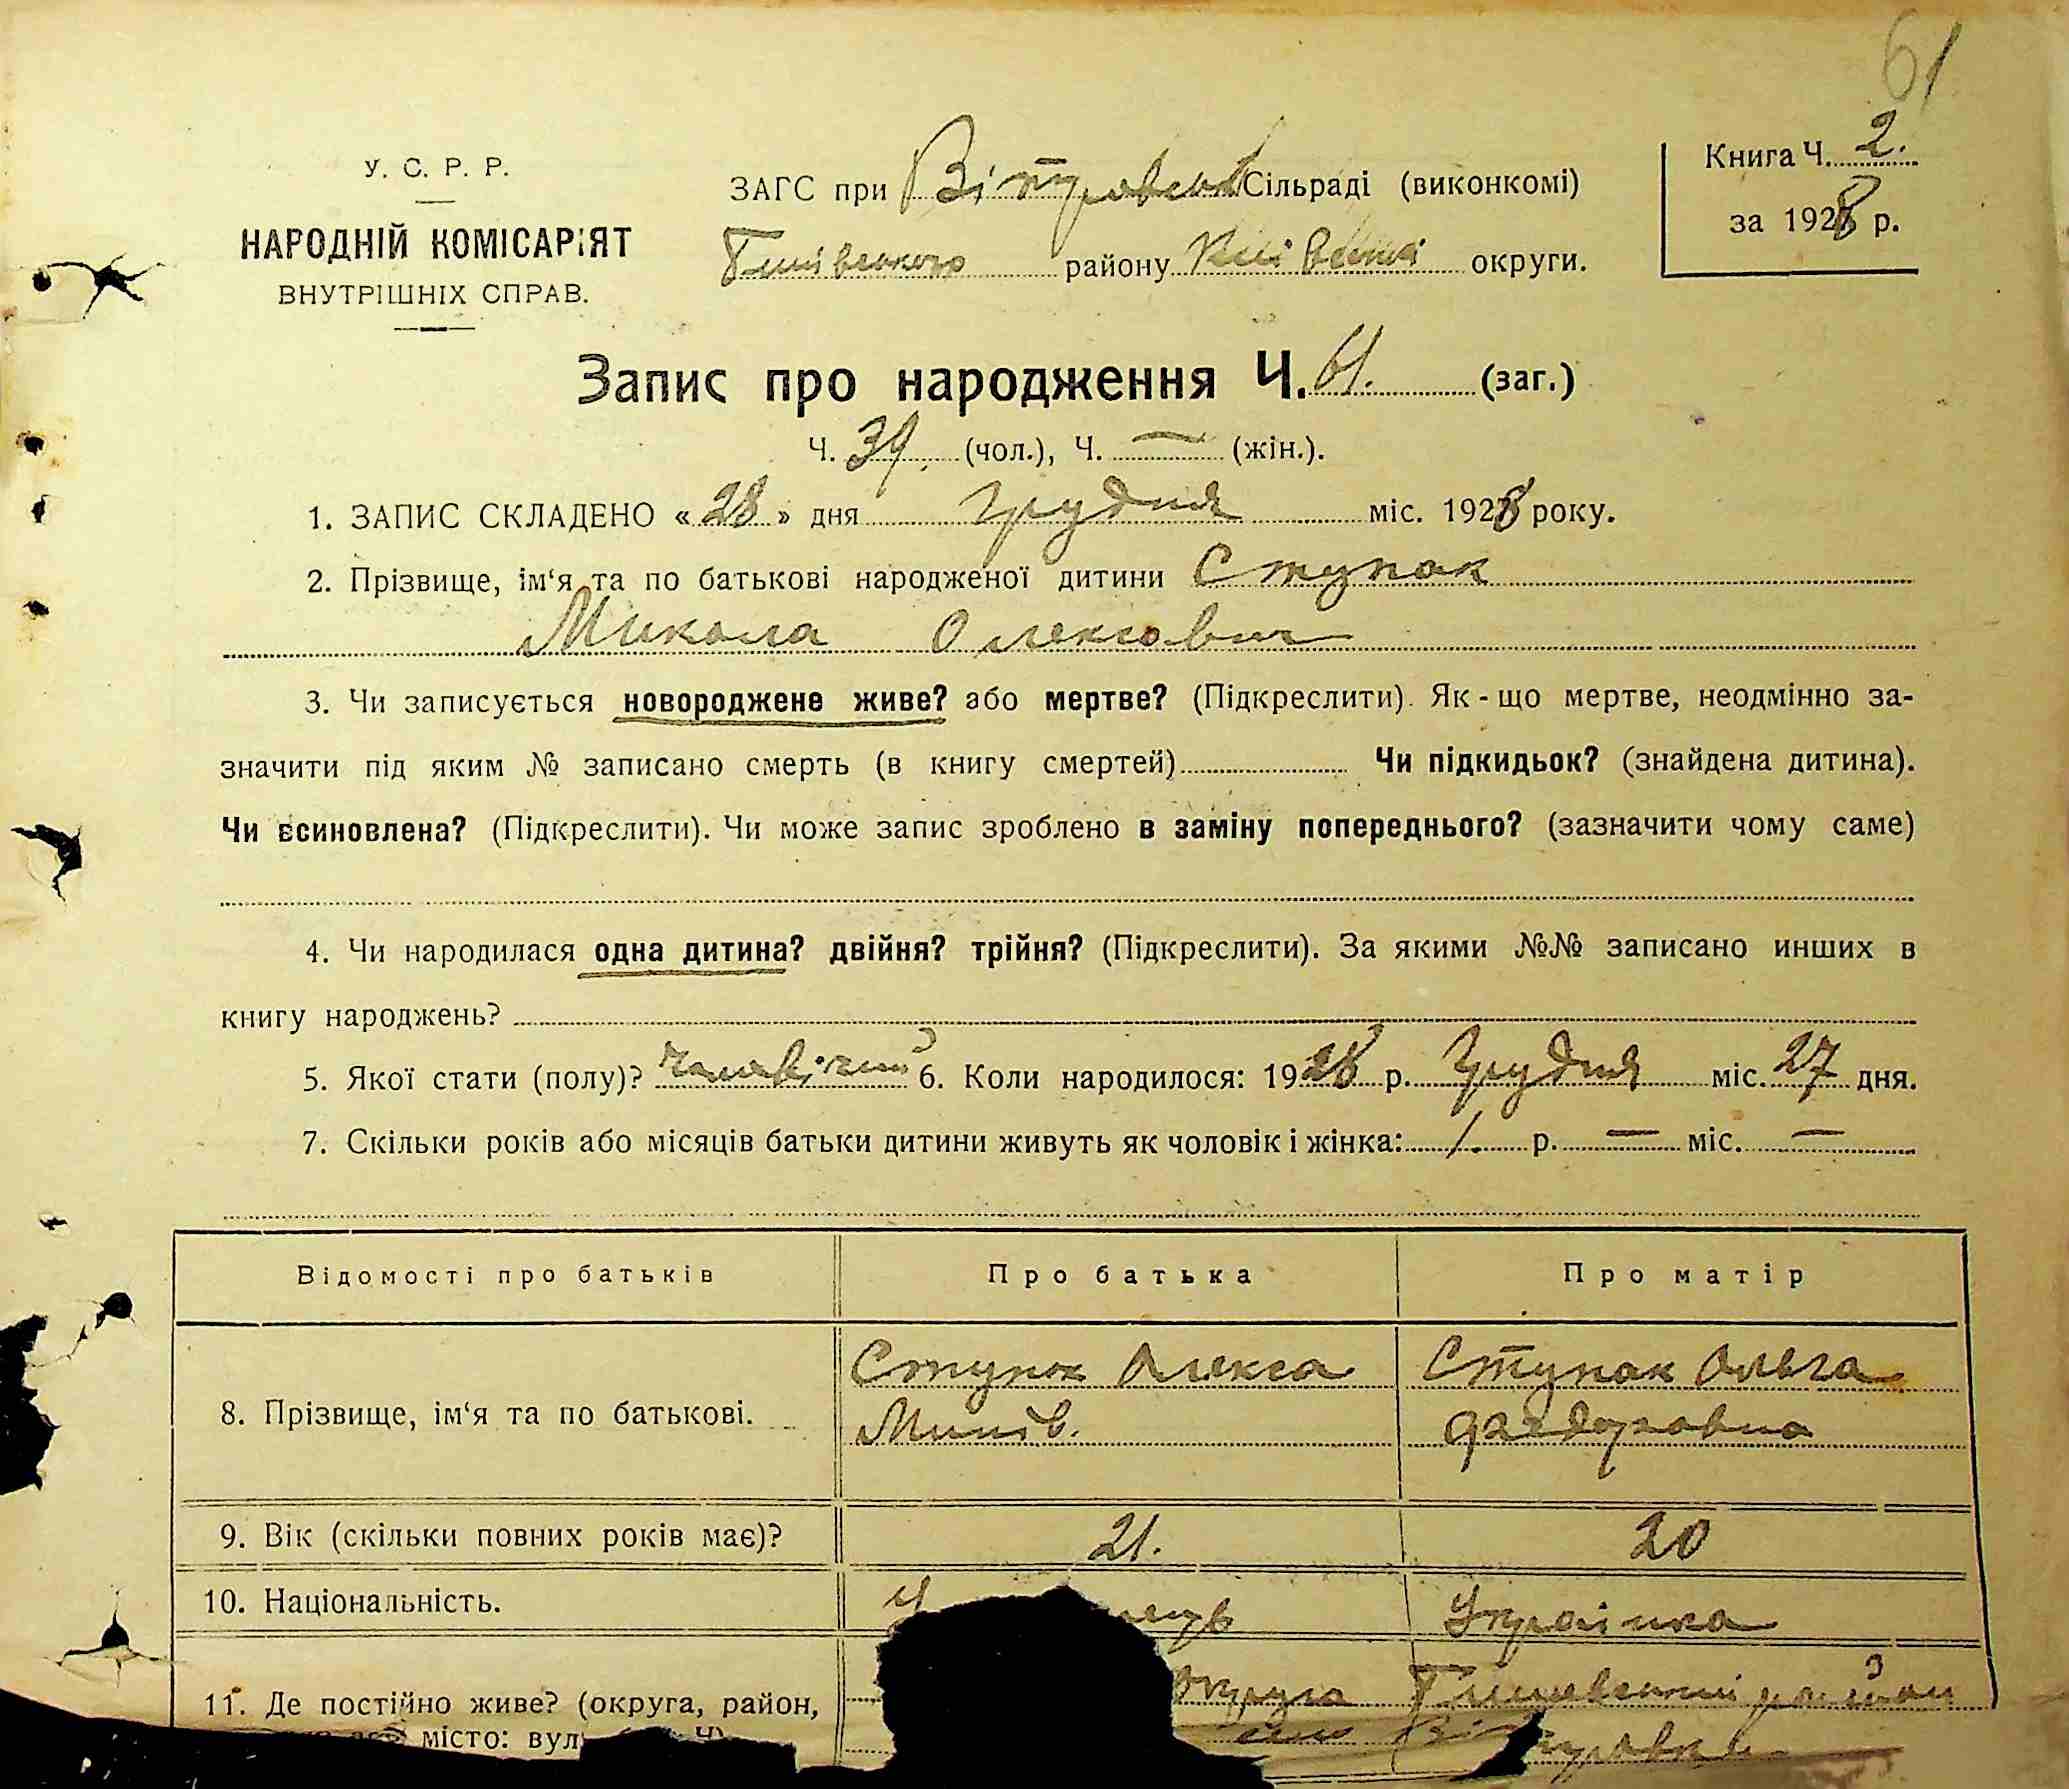 61
У. С. Р. Р.
НАРОДНІЙ КОМІСАРІЯТ
ВНУТРІШНІХ СПРАВ.
ЗАГС при Сільраді (виконкомі)
району округи.
Книга Ч. 2.
за 1928 р.
Запис про народження Ч. 61. (заг.)
Ч. 39. (чол.), Ч. — (жін.).
1. ЗАПИС СКЛАДЕНО « 28 » дня Грудня міс. 1928 року.
2. Прізвище, ім‘я та по батькові народженої дитини Ступак
Микола Олексович
3. Чи записується новороджене живе? або мертве? (Підкреслити). Як - що мертве, неодмінно за-
значити під яким № записано смерть (в книгу смертей) Чи підкидьок? (знайдена дитина).
Чи всиновлена? (Підкреслити). Чи може запис зроблено в заміну попереднього? (зазначити чому саме)
4. Чи народилася одна дитина? двійня? трійня? (Підкреслити). За якими №№ записано инших в
книгу народжень?
5. Якої стати (полу)? Чоловічий 6. Коли народилося: 1928 р. Грудня міс. 27 дня.
7. Скільки років або місяців батьки дитини живуть як чоловік і жінка: 1. р. — міс. —
Відомості про батьків Про батька Про матір
8. Прізвище, ім‘я та по батькові. Ступак Олекса Ступак Ольга
9. Вік (скільки повних років має)? 21. 20
10. Національність. Українка
11. Де постійно живе? (округа, район, округа район
місто: вул село